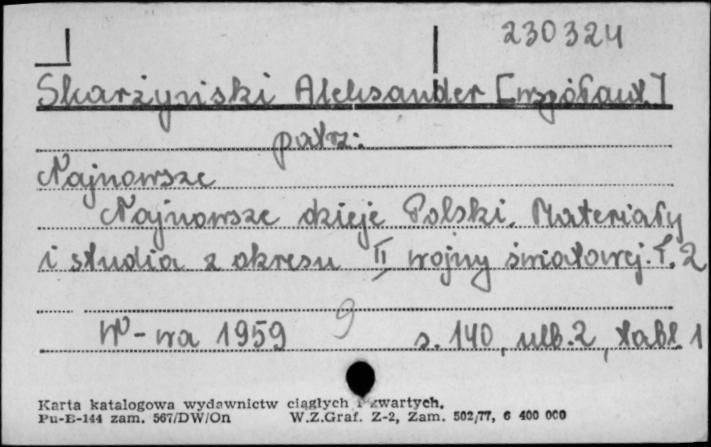 230324
Skarżyński Aleksander [współaut.]
patrz:
Najnowsze
Najnowsze dzieje Polski. Materiały
i studia z okresu II wojny światowej. T. 2
W-wa 1959 9 s. 140, ulb. 2, tabl. 1
Karta katalogowa wydawnictw ciągłych i zwartych.
Pu-B-144 zam. 567/DW/On W.Z.Graf. Z-2, Zam. 502/77, 6 400 000